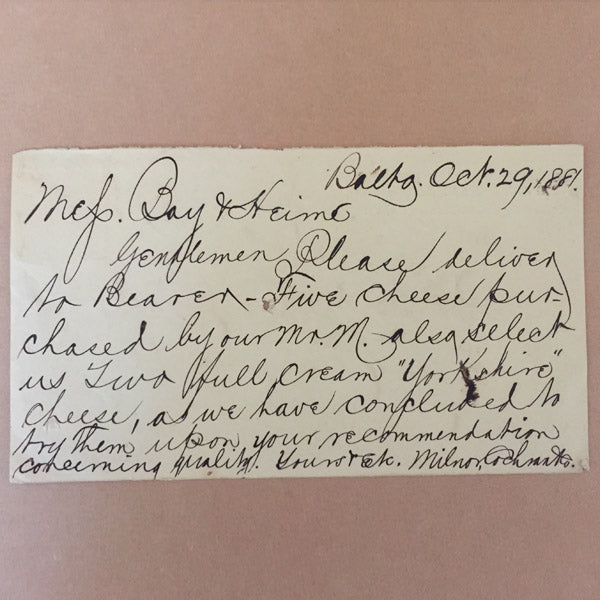 Balto. Oct. 29, 1881.
Mess. Bay & Heime
Gentlemen Please deliver
to Bearer - Five cheese pur-
chased by our Mr. M. also select
us Two full cream "Yorkshire"
cheese, as we have concluded to
try them upon your recommendation
concerning quality. Yours &tc. Milnor,